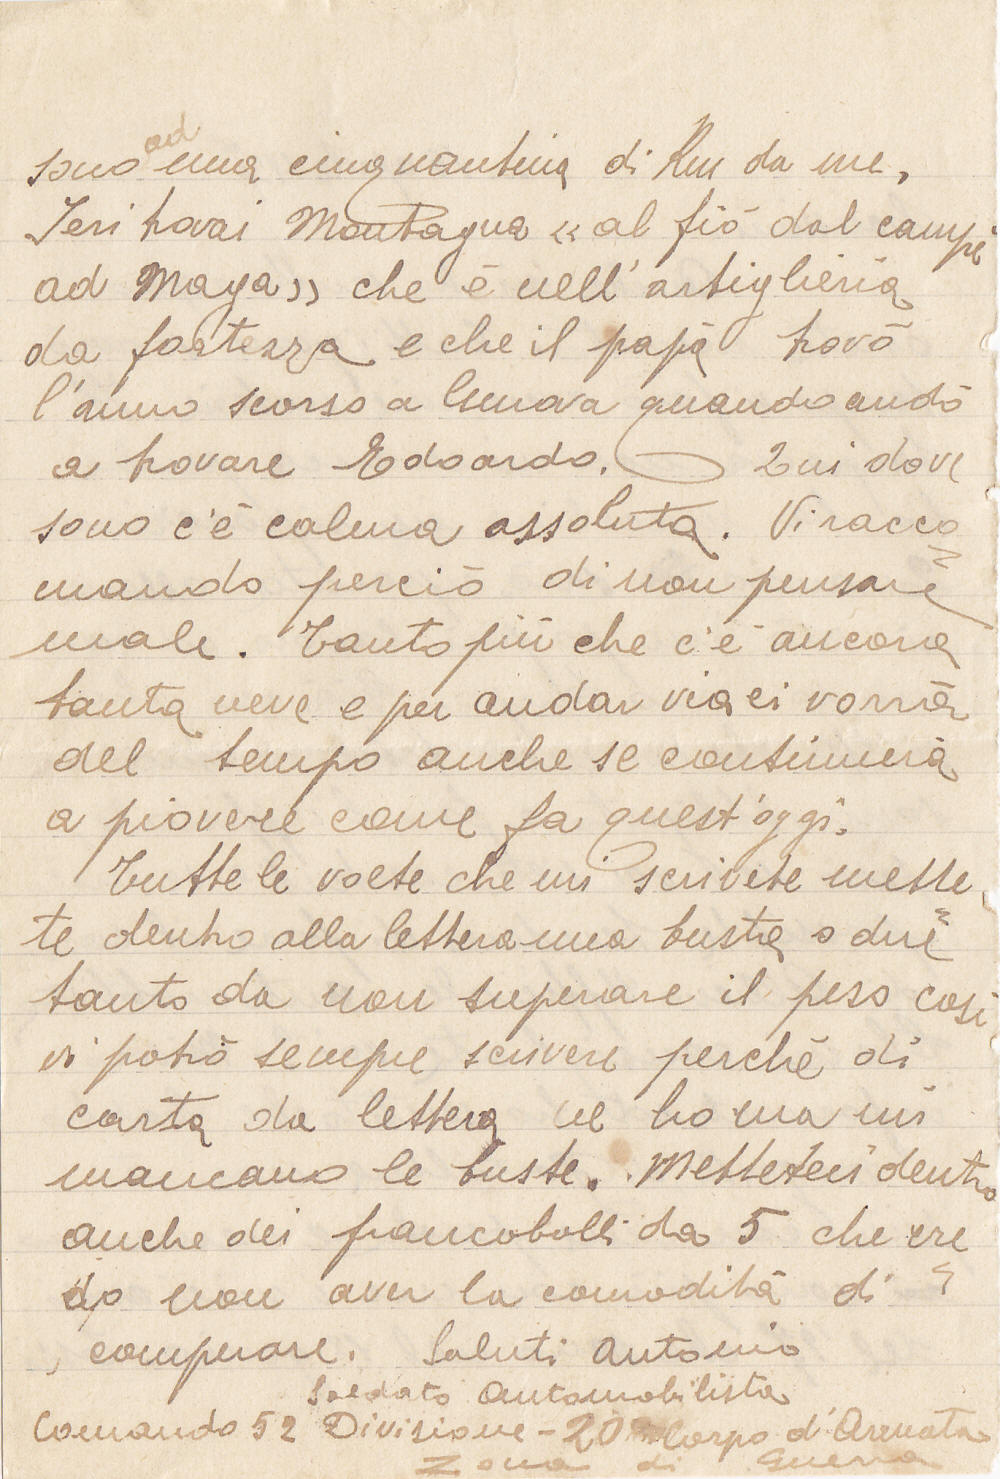 sono ad una cinquantina di Km da me.
Ieri trovai Montagna « al fiö dal campè
ad Maga » che è nell'artiglieria
da fortezza e che il papà trovò
l'anno scorso a Genova quando andò
a trovare Edoardo. Qui dove
sono c'è calma assoluta. Vi racco
mando perciò di non pensare
male. Tanto più che c'è ancora
tanta neve e per andar via ci vorrà
del tempo anche se continuerà
a piovere come fa quest'oggi.
Tutte le volte che mi scrivete mette
te dentro alla lettera una busta o due
tanto da non superare il peso così
vi potrò sempre scrivere perchè di
carta da lettera ne ho ma mi
mancano le buste. Metteteci dentro
anche dei francobolli da 5 che cre
do non aver la comodità di
comperare. Saluti Antonio
Soldato Automobilista
Comando 52 Divisione - 20 Corpo d'Armata
Zona di Guerra